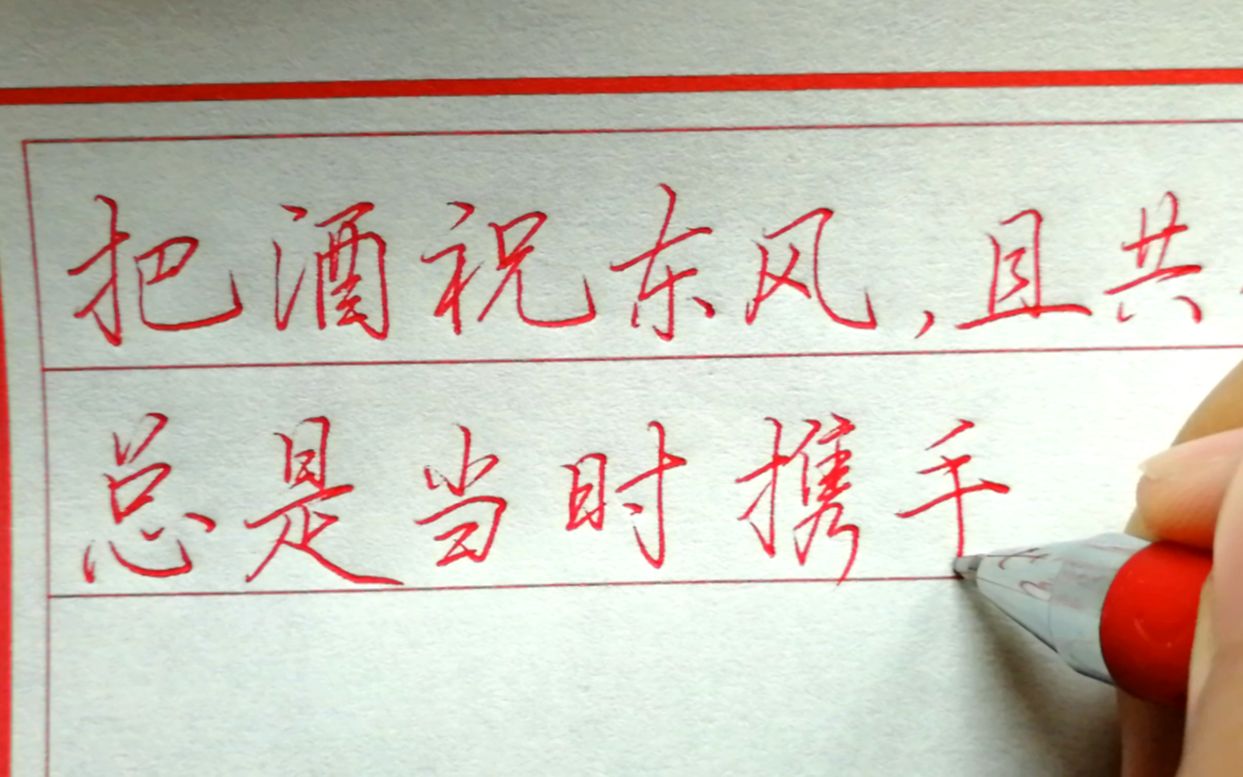 把酒祝东风,且共
总是当时携手